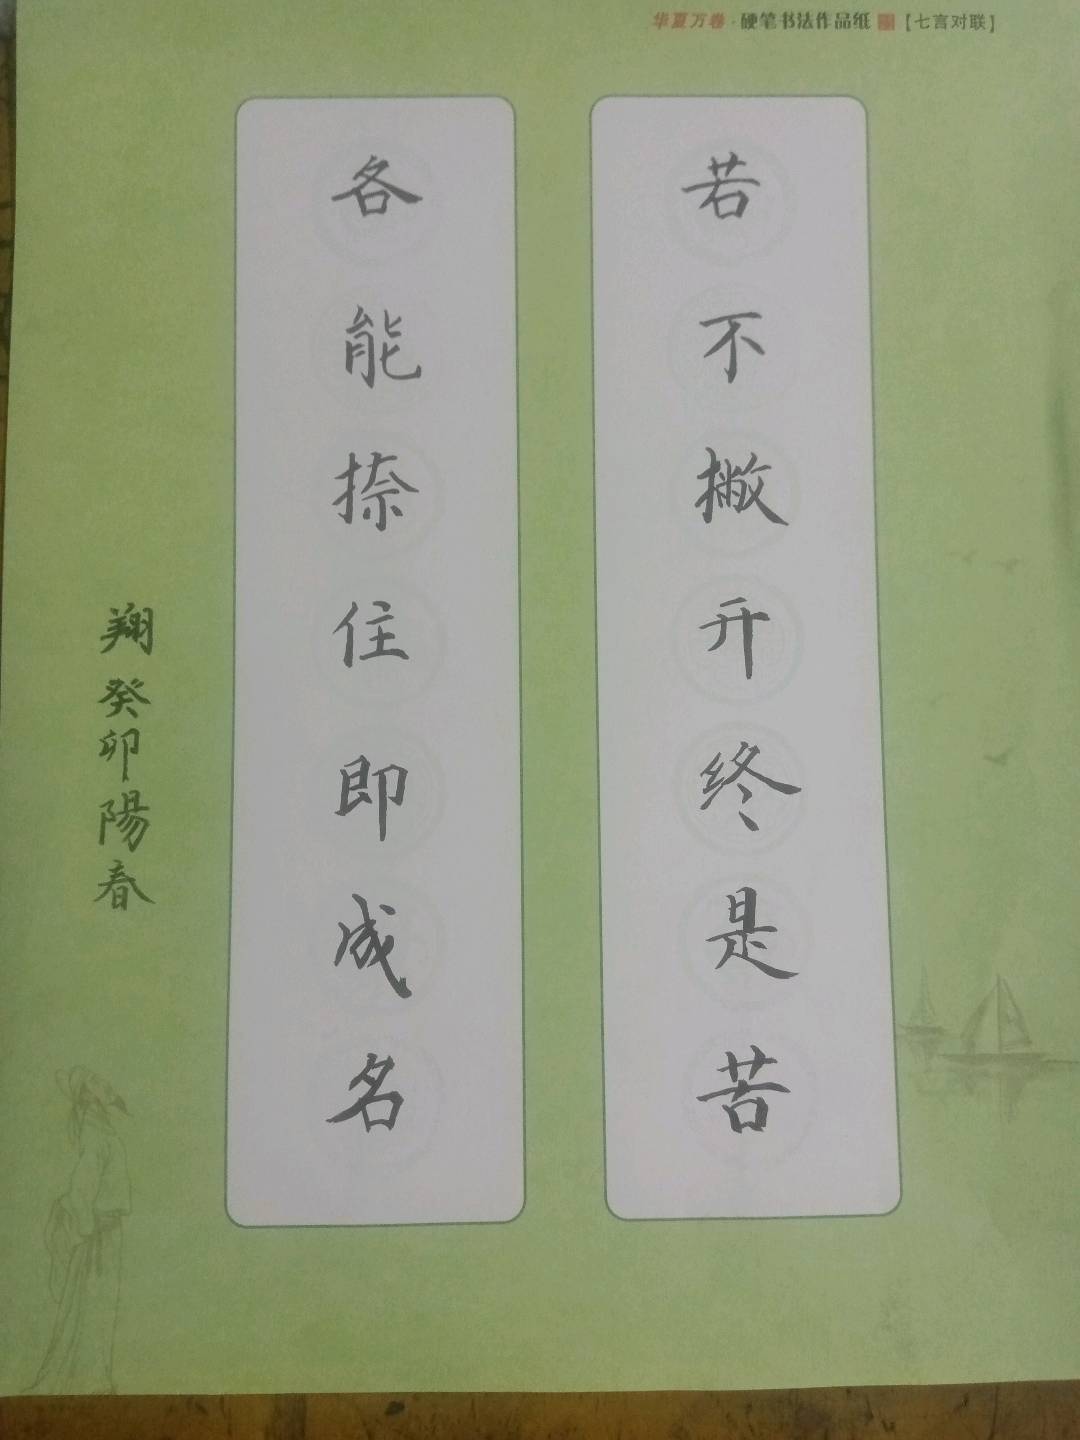 华夏万卷·硬笔书法作品纸【七言对联】
若不撇开终是苦
各能捺住即成名
翔 癸卯陽春